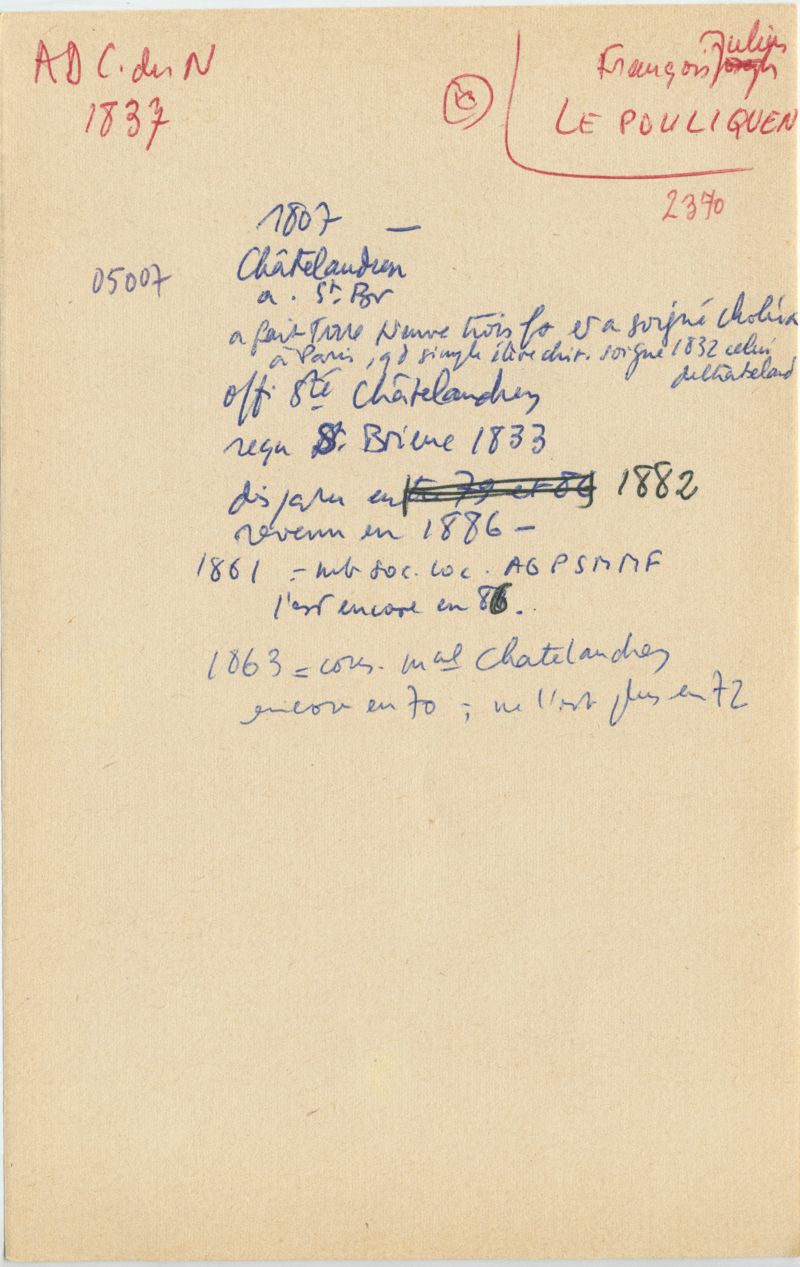 AD C. du N
1837
François Julien
LE POULIQUEN
2370
1807 —
05007
Châtelaudren
a . St. Br
a fait Terre Neuve trois fs et a soigné choléra
à Paris, qd simple élève chir. soigné 1832 celui
de Chatelaud
offi Sté Châtelaudren
reçu St. Brieuc 1833
disparu en 1882
revenu en 1886 —
1861 = mb soc. loc. AGPSMMF
l'est encore en 86.
1863 = cons. mal Chatelaudren
encore en 70 ; ne l'est plus en 72